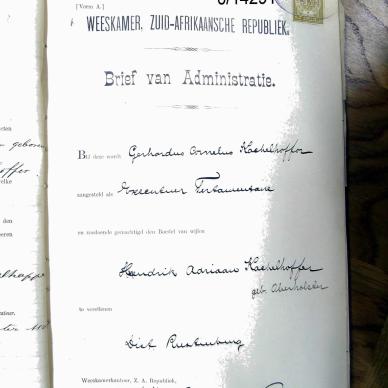 [Vorm A.]
WEESKAMER, ZUID-AFRIKAANSCHE REPUBLIEK.
Brief van Administratie.
BIJ deze wordt Gerhardus Cornelius Kachelhoffer
aangesteld als Executeur Testamentair
en zoodoende gemachtigd den Boedel van wijlen
Hendrik Adriaan Kachelhoffer
geb. Oberholster
te vereffenen
Dist Rustenburg
Weeskamerkantoor, Z. A. Republiek,